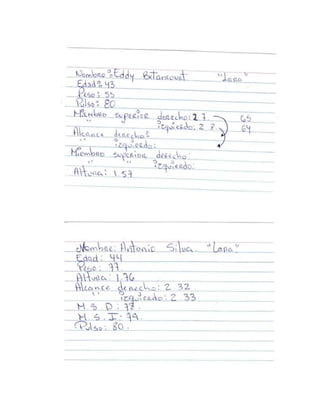 Nombre: Eddy Betancourt "Lara"
Edad: 43
Peso: 55
Pulso: 80
Miembro superior derecho: 2 7 65
" " izquierdo: 2 7 64
Alcance derecho:
" izquierdo:
Miembro superior derecho
" " izquierdo:
Altura: 1.57
Nombre: Antonio Silva. "Lara"
Edad: 44
Peso: 77
Altura: 1,76
Alcance derecho: 2 32
" izquierdo: 2 33
M. S. D: 78
M. S. I: 79.
Pulso: 80.